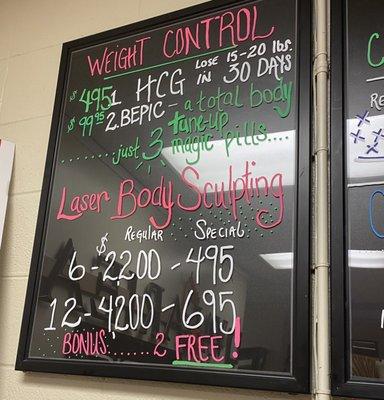 WEIGHT CONTROL
$495 1 HCG LOSE 15-20 lbs. IN 30 DAYS
$99.95 2. BEPIC - a total body
tune-up
........just 3 magic pills....
Laser Body Sculpting
REGULAR SPECIAL
6 - $2200 - 495
12 - 4200 - 695
BONUS....... 2 FREE!